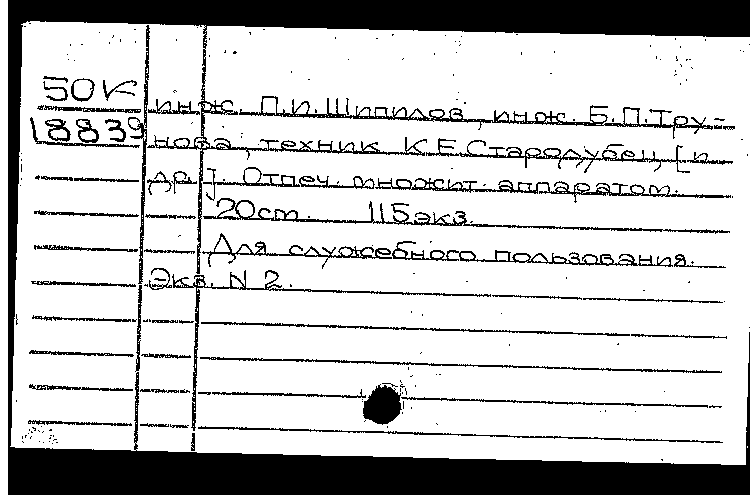 50К инж. П.И.Шипилов, инж. Б.П.Тру-
18839 нова, техник К.Е.Стародубец, [и
др.]. Отпеч. множит. аппаратом.
20см. 115экз.
Для служебного пользования.
Экз. N 2.